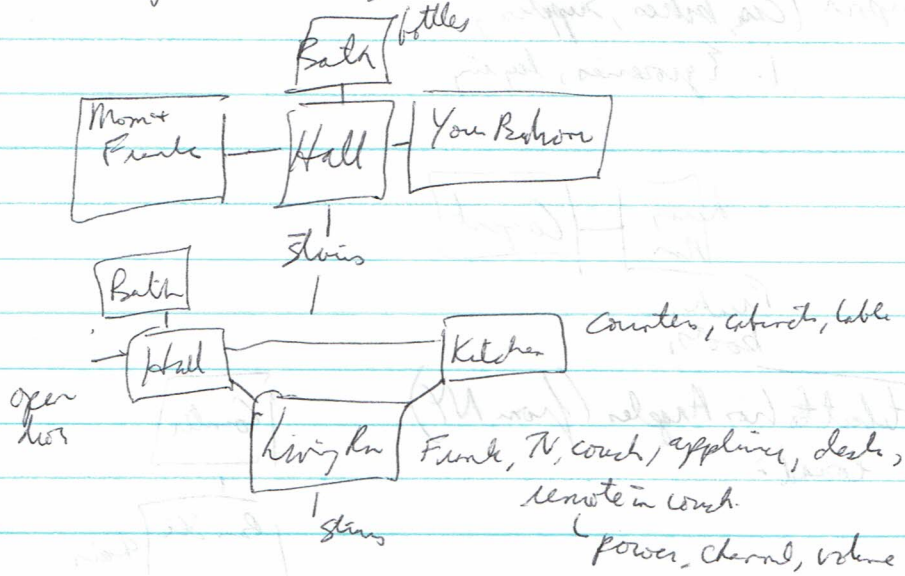 Bath bottles
Mom + Frank Hall Your Bedroom
stairs
Bath
Hall Kitchen counters, cabinets, table
open door
Living Rm Frank, TV, couch, appliance, desk,
remote in couch.
stairs power, channel, volume